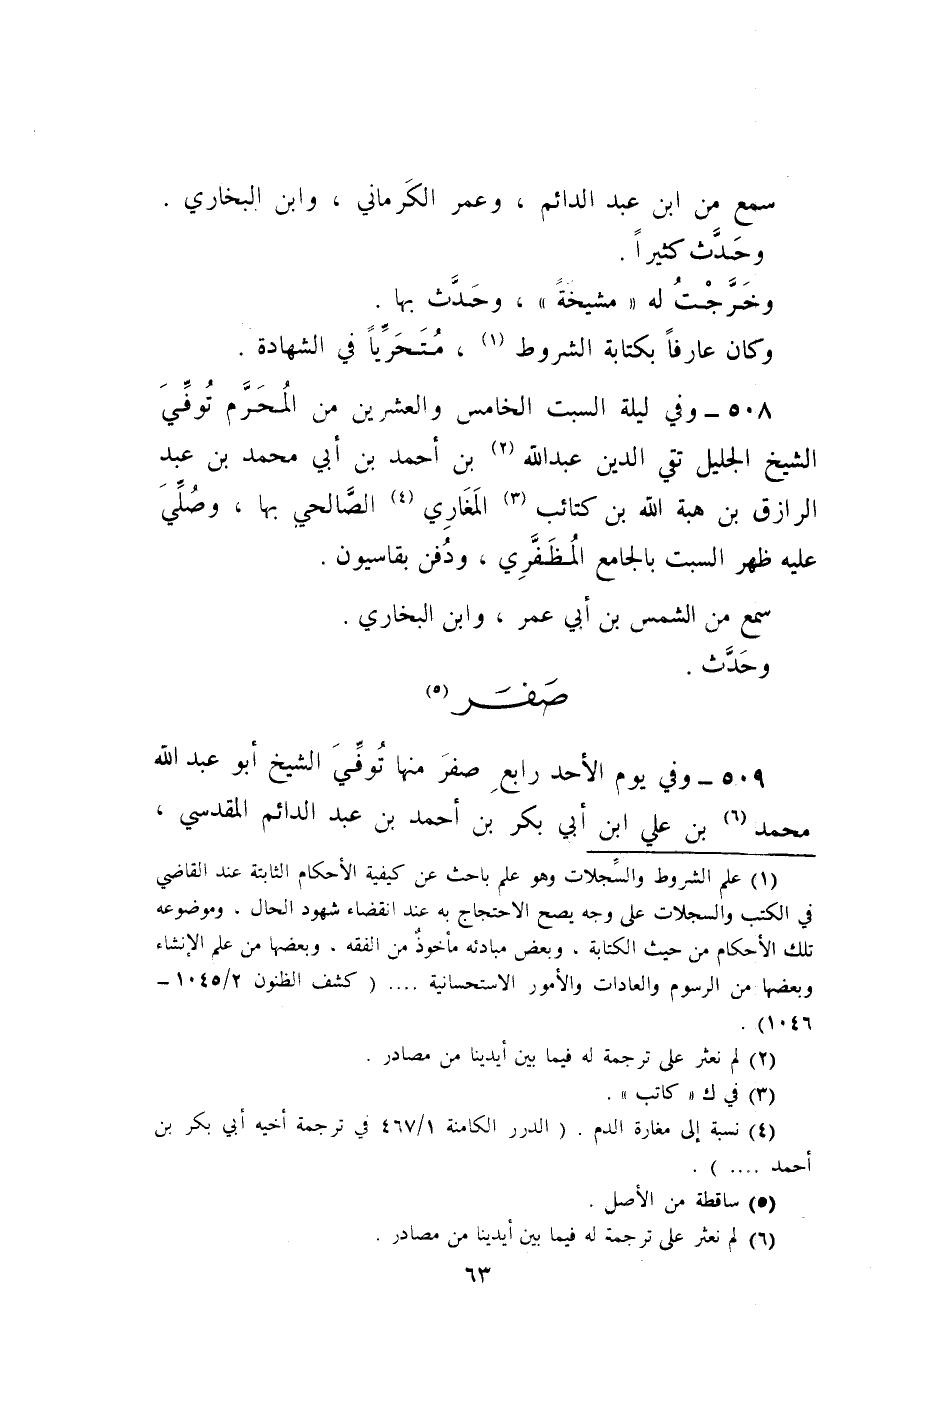 سمع من ابن عبد الدائم ، وعمر الكَرماني ، وابن البخاري .
وحَدَّث كثيراً .
وخَرَّجْتُ له « مشيخةً » ، وحَدَّث بها .
وكان عارفاً بكتابة الشروط (١) ، مُتَحَرِّياً في الشهادة .
٥٠٨ ـ وفي ليلة السبت الخامس والعشرين من المُحَرَّم تُوفِّيَ
الشيخ الجليل تقي الدين عبدالله (٢) بن أحمد بن أبي محمد بن عبد
الرازق بن هبة الله بن كتائب (٣) المَغَارِي (٤) الصَّالحي بها ، وصُلِّيَ
عليه ظهر السبت بالجامع المُظَفَّرِي ، ودُفن بقاسيون .
سمع من الشمس بن أبي عمر ، وابن البخاري .
وحَدَّث .
صَفَر (٥)
٥٠٩ ـ وفي يوم الأحد رابعِ صفرَ منها تُوفِّيَ الشيخ أبو عبد الله
محمد (٦) بن علي ابن أبي بكر بن أحمد بن عبد الدائم المقدسي ،
(١) علم الشروط والسِّجلات وهو علم باحث عن كيفية الأحكام الثابتة عند القاضي
في الكتب والسجلات على وجه يصح الاحتجاج به عند انقضاء شهود الحال . وموضوعه
تلك الأحكام من حيث الكتابة . وبعض مبادئه مأخوذٌ من الفقه . وبعضها من علم الإنشاء
وبعضها من الرسوم والعادات والأمور الاستحسانية .... ( كشف الظنون ١٠٤٥/٢ ـ
١٠٤٦) .
(٢) لم نعثر على ترجمة له فيما بين أيدينا من مصادر .
(٣) في ك « كاتب » .
(٤) نسبة إلى مغارة الدم . ( الدرر الكامنة ٤٦٧/١ في ترجمة أخيه أبي بكر بن
أحمد .... ) .
(٥) ساقطة من الأصل .
(٦) لم نعثر على ترجمة له فيما بين أيدينا من مصادر .
٦٣